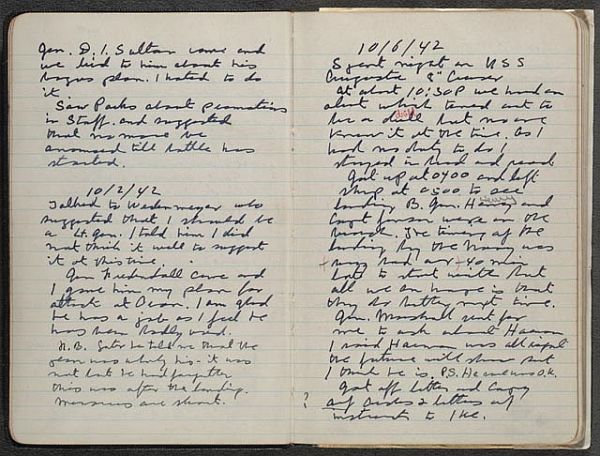 Gen. D. I. Sultan came and
we lied to him about his
bogus plan. I hated to do
it.
Saw Parks about promotions
in Staff and suggested
that no more be
announced till battle has
started.
10/2/42
Talked to Wedemeyer who
suggested that I should be
a Lt. Gen. I told him I did
not think it well to suggest
it at this time.
Gen Fredendall came and
I gave him my plan for
attack at Oran. I am glad
he has a job as I feel he
has been badly used.
N.B. Later he told me that the
plan was wholy his - it was
not but he had forgotten
this was after the landing.
Memories are short.
10/6/42
Spent night on USS
Augusta 8" Cruiser
At about 10:30 P we had an
alert which turned out to
be a drill but no one
knew it at the time. As I
had no duty to do I
stayed in bed and read.
Got up at 0400 and left
ship at 0500 to see
landing. B. Gen. and
Capt were on the
The timing of the
landing by the Navy was
very bad, over 40 min
late to start with but
all we can hope is that
they do better next time.
Gen. Marshall sent for
me to ask about Harmon
I said Harmon was all right
the future will show but
I think he is. P.S. He was O.K.
Got off letter and Copy
of orders & letters of
? instruct to Ike.